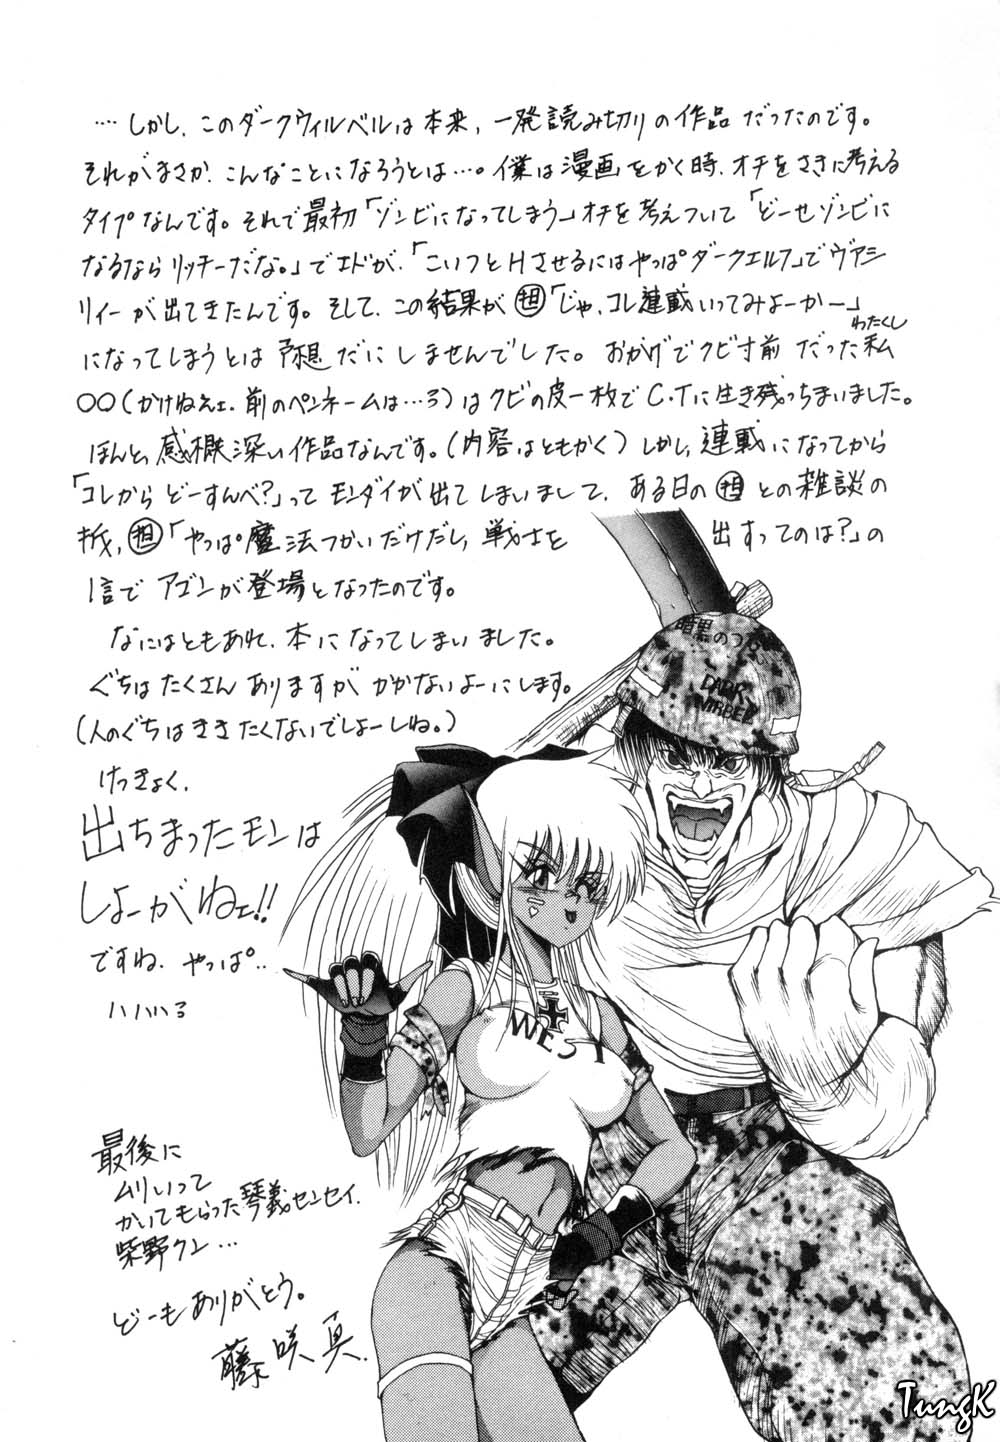 …しかし、このダークウィルベルは本来、一発読み切りの作品だったのです。
それがまさか、こんなことになろうとは…。僕は漫画をかく時、オチをさきに考える
タイプなんです。それで最初「ゾンビになってしまう」オチを考えついて「どーせゾンビに
なるならリッチーだな。」でエドが、「こいつとHさせるにはやっぱダークエルフ」でヴァシ
リィーが出てきたんです。そして、この結果が㋪「じゃ、コレ連載いってみよーか〜」
になってしまうとは予想だにしませんでした。おかげでクビ寸前だった私
わたくし
〇〇(かけねぇェ、前のペンネームは…る)はクビの皮一枚でC・Tに生き残っちまいました。
ほんと、感概深い作品なんです。(内容はともかく)しかし、連載になってから
「コレからどーすんべ?」ってモンダイが出てしまいまして、ある日の担との雑談の
担「やっぱ魔法つかいだけだし、戦士を出すってのは?」の
1言でアゴンが登場となったのです。
なにはともあれ、本になってしまいました。
ぐちはたくさんありますがかかないよーにします。
(人のぐちはききたくないでしょーしね。)
けっきょく、
出ちまったモンは
しょーがねェ!!
ですね、やっぱ‥
ハハハハる
暗黒の
DARK
WIRBEL
WEST
最後に
ムリいって
かいてもらった琴義センセイ、
柴野クン…
どーもありがとう。
藤咲真
TungK